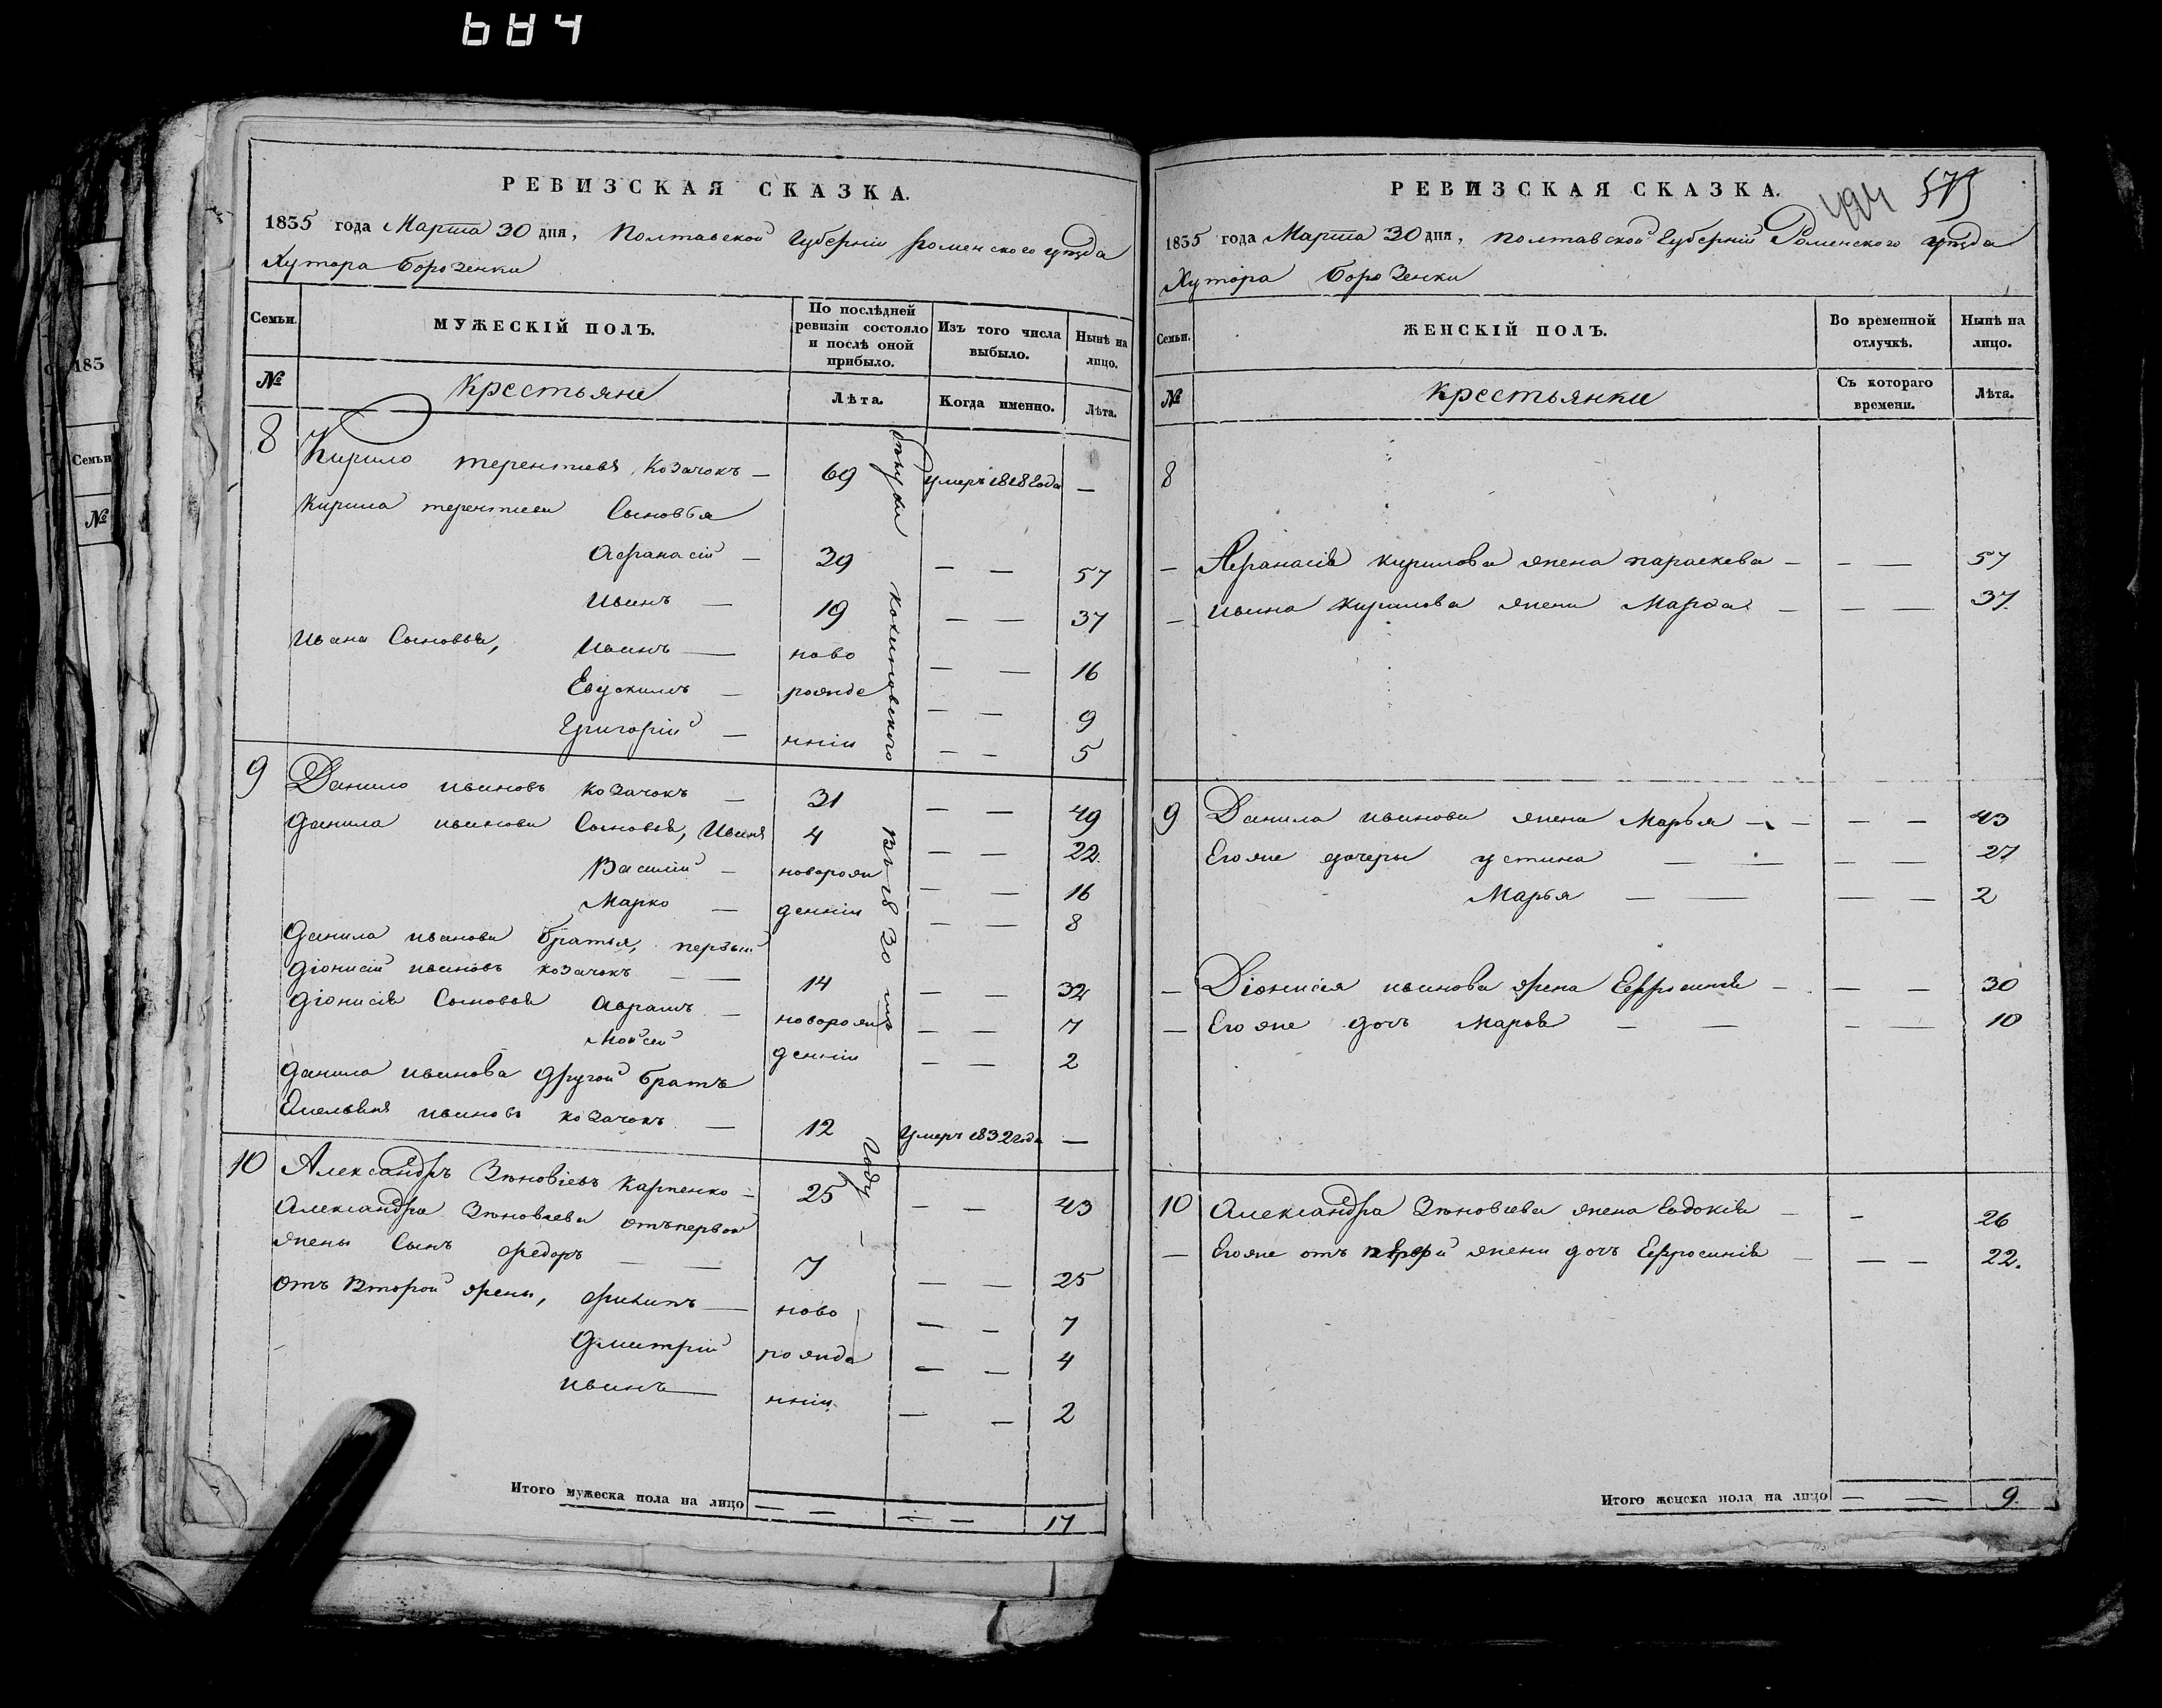 684
РЕВИЗСКАЯ СКАЗКА.
1835 года Марта 30 дня, Полтавской Губерніи Роменского уезда
Хутора Борозенки
Семьи.
МУЖЕСКІЙ ПОЛЪ.
По послѣдней ревизіи состояло и послѣ оной прибыло.
Изъ того числа выбыло.
Нынѣ на лицо.
№
Крестьяне
Лѣта.
Когда именно.
Лѣта.
8 Кирило терентиевъ Козачокъ — 69 умеръ 1818 года —
Кирила терентиева Сыновья
Афанасій — 39 — — 57
Иванъ — 19 — — 37
Ивана Сыновья, Иванъ — ново — — 16
Евдокимъ — рожде — — 9
Григорій — нніи — — 5
9 Данило ивановъ козачокъ — 31 — — 49
Данила иванова Сыновья, Иванъ 4 — — 22.
Василій — новорож — — 16
Марко — денніи — — 8
Данила иванова братья, первый
Діонисій ивановъ козачокъ — — 14 — — 32
Діонисія Сыновья Аврамъ — новорож — — 7
Мойсей денніи — — 2
Данила иванова другой братъ
Емельянъ ивановъ козачокъ — 12 умеръ 1832 года —
10 Александръ Зѣновіевъ Карпенко — 25 — — 43
Александра Зѣновіева отъ первой
жены Сынъ федоръ — — 7 — — 25
отъ второй жены, филипъ — ново — — 7
Дмитрій рожде — — 4
иванъ — нніи — — 2
въ 1830 мъ году
Итого мужеска пола на лицо — — — — 17
183
Семьи
№
РЕВИЗСКАЯ СКАЗКА.
494 575
1835 года Марта 30 дня, полтавской Губерніи Роменского уезда
Хутора Борозенки
Семьи.
ЖЕНСКІЙ ПОЛЪ.
Во временной отлучкѣ.
Нынѣ на лицо.
№
крестьянки
Съ котораго времени.
Лѣта.
8
— Афанасія кирилова жена параскева — — — 57
— ивана кирилова жена Марфа — — — 37.
9 Данила иванова жена Марья — — — — 43
Его же дочеры устина — — — — 27
Марья — — — — 2
— Діонисія иванова жена Ефросинія — — — 30
— Его же дочь Марья — — — — 10
10 Александра Зѣновіева жена Евдокія — — 26
— Его же отъ первой жены дочь Ефросинія — — — 22.
Итого женска пола на лицо — — 9.